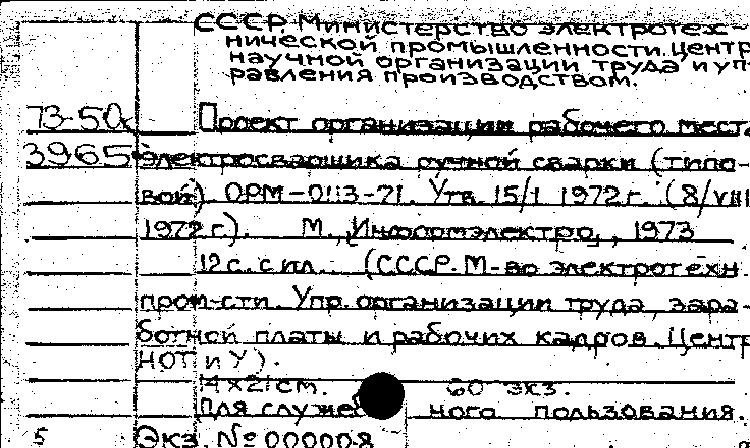 СССР Министерство электротех-
нической промышленности. Центр
научной организации труда и уп-
равления производством.
73-50
Проект организации рабочего места
3965 электросварщика ручной сварки (типо-
вой). ОРМ-0113-71. Утв. 15/I 1972 г. (8/VIII
1972 г.). М., Информэлектро, 1973
12 с. с ил. (СССР. М-во электротехн.
пром-сти. Упр. организации труда, зара-
ботной платы и рабочих кадров. Центр
НОТ и У).
14x21 см. 60 экз.
Для служеб ного пользования.
5 Экз. № 000008